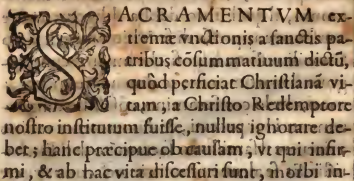 SACRAMENTVM ex-
tremæ vnctionis a sanctis pa-
tribus cōsummatiuum dictū,
quòd perficiat Christianā vi-
tam, a Christo Redemptore
nostro institutum fuisse, nullus ignorare de-
bet; hanc præcipue ob causam, vt qui infir-
mi, & ab hac vita discessuri sunt, morbi in-